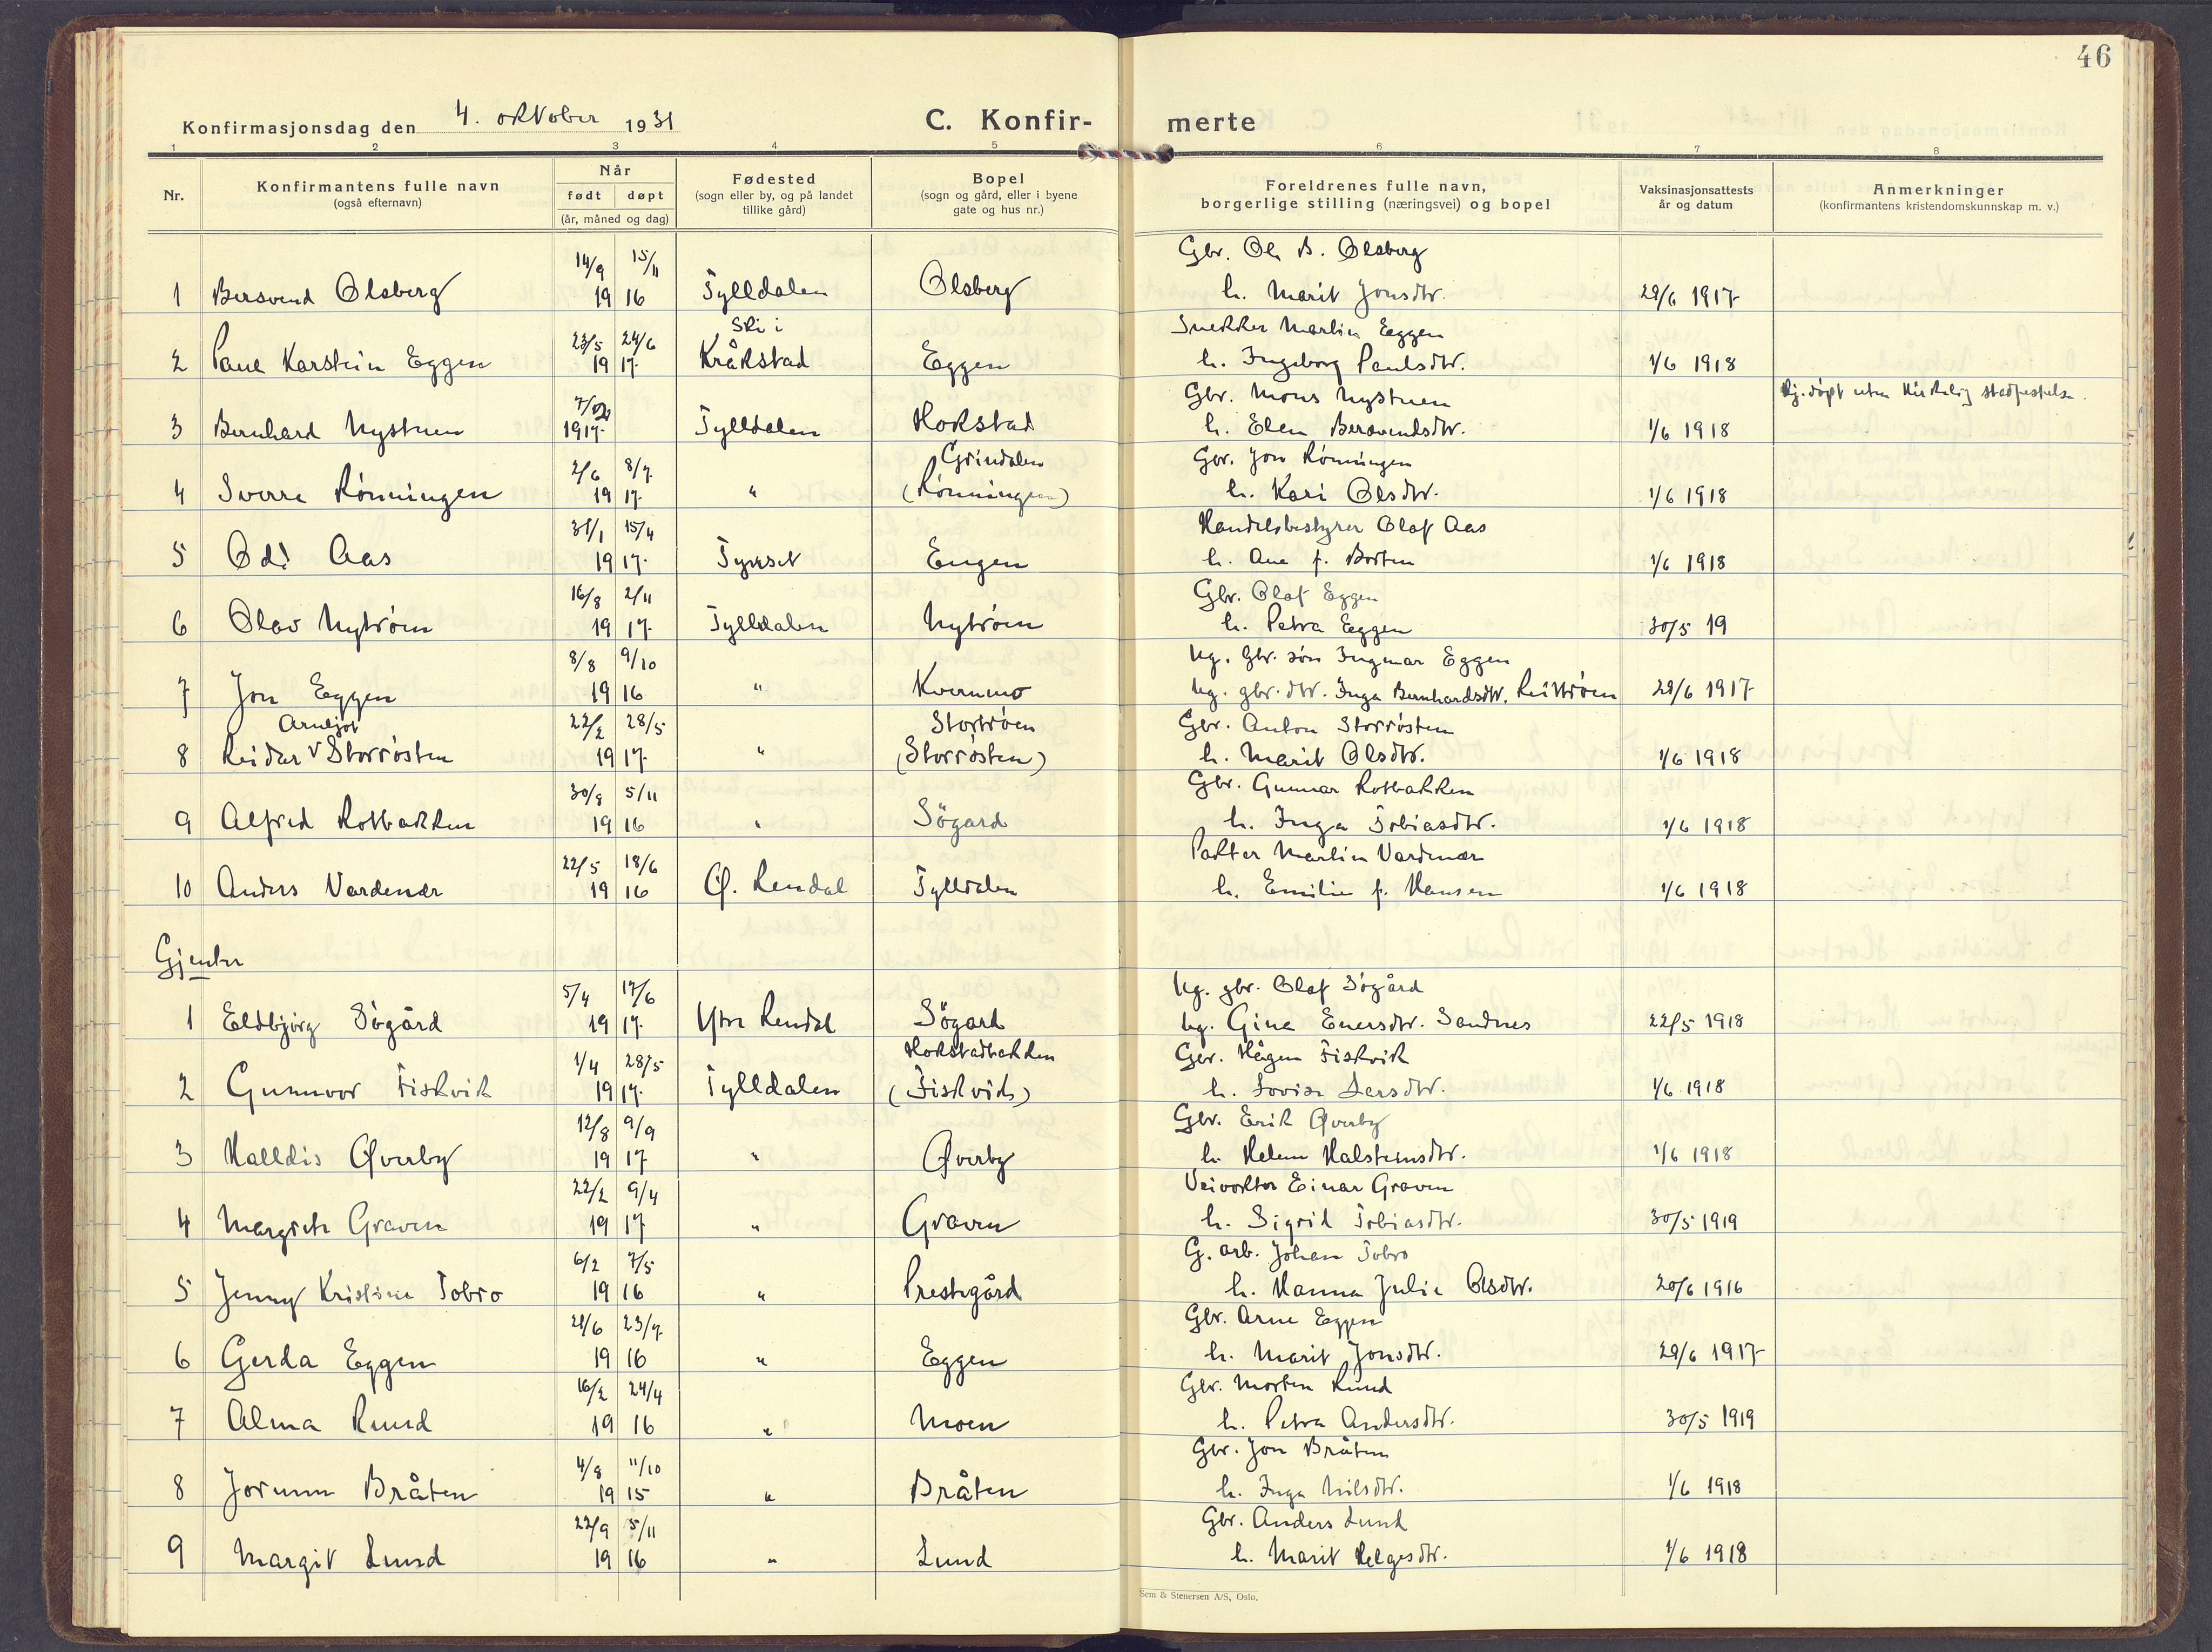 46
Konfirmasjonsdag den 4. oktober 1931
C. Konfir-merte
1 2 3 4 5 6 7 8
Nr. Konfirmantens fulle navn (også efternavn) Når født døpt (år, måned og dag) Fødested (sogn eller by, og på landet tillike gård) Bopel (sogn og gård, eller i byene gate og hus nr.) Foreldrenes fulle navn, borgerlige stilling (næringsvei) og bopel Vaksinasjonsattests år og datum Anmerkninger (konfirmantens kristendomskunnskap m. v.)
14/9 15/11 Gbr. Ole B. Olsberg
1 Bersvend Olsberg 19 16 Tylldalen Olsberg h. Marit Jonsdtr. 29/6 1917
23/5 24/6 Ski i Snekker Martin Eggen
2 Paul Karstein Eggen 19 17 Kråkstad Eggen h. Ingeborg Paulsdtr. 1/6 1918
Gbr. Mons Nystuen Hj. døpt uten kirkelig stadfestelse.
3 Bernhard Nystuen 1917 Tylldalen Hokstad h. Elen Bersvendsdtr. 1/6 1918
2/6 8/7 Grindalen Gbr. Jon Rønningen
4 Sverre Rønningen 19 17 " (Rønningen) h. Kari Olsdtr. 1/6 1918
31/1 15/4 Handelsbestyrer Olaf Aas
5 Odd Aas 19 17 Tynset Engen h. Ane f. Borten 1/6 1918
16/8 2/11 Gbr. Olaf Eggen
6 Olav Nytrøen 19 17 Tylldalen Nytrøen h. Petra Eggen 30/5 19
8/8 9/10 Ug. gbr. søn Ingmar Eggen
7 Jon Eggen 19 16 " Kvernmo ug. gbr. dtr. Inga Bernhardsdtr. 29/6 1917
Arnljot 22/2 28/5 Stortrøen Gbr. Anton Storrøsten
8 Reidar v Storrøsten 19 17 " (Storrøsten) h. Marit Olsdtr. 1/6 1918
30/8 5/11 Gbr. Gunnar Rotbakken
9 Alfred Rotbakken 19 16 " Søgard h. Inga Tobiasdtr. 1/6 1918
22/5 18/6 Pakter Martin Vardenær
10 Anders Vardenær 19 16 Ø. Rendal Tylldalen h. Emilie f. Hansen 1/6 1918
Gjenter
5/4 17/6 Ug. gbr. Olaf Søgård
1 Eldbjørg Søgård 19 17 Ytre Rendal Søgard ug. Gina Enersdtr. Sandnes 22/5 1918
1/4 28/5 Hokstadbakken Gbr. Hågen Fiskvik
2 Gunnvor Fiskvik 19 17 Tylldalen (Fiskvik) h. Lovise Larsdtr. 1/6 1918
12/8 9/9 Gbr. Erik Øverby
3 Halldis Øverby 19 17 " Øverby h. Helene Halsteinsdtr. 1/6 1918
22/2 9/4 Veivokter Einar Graven
4 Margrete Graven 19 17 " Graven h. Sigrid Tobiasdtr. 30/5 1919
6/2 7/5 G. arb. Johan Tobro
5 Jenny Kristine Tobro 19 16 " Prestegård h. Hanna Julie Olsdtr. 20/6 1916
21/6 23/7 Gbr. Arne Eggen
6 Gerda Eggen 19 16 " Eggen h. Marit Jonsdtr. 29/6 1917
16/2 24/4 Gbr. Morten Rund
7 Alma Rund 19 16 " Moen h. Petra Andersdtr. 30/5 1919
4/8 11/10 Gbr. Jon Bråten
8 Jorunn Bråten 19 15 " Bråten h. Inga Nilsdtr. 1/6 1918
22/9 5/11 Gbr. Anders Lund
9 Margit Lund 19 16 " Lund h. Marit Helgesdtr. 1/6 1918
Sem & Stenersen A/S, Oslo.